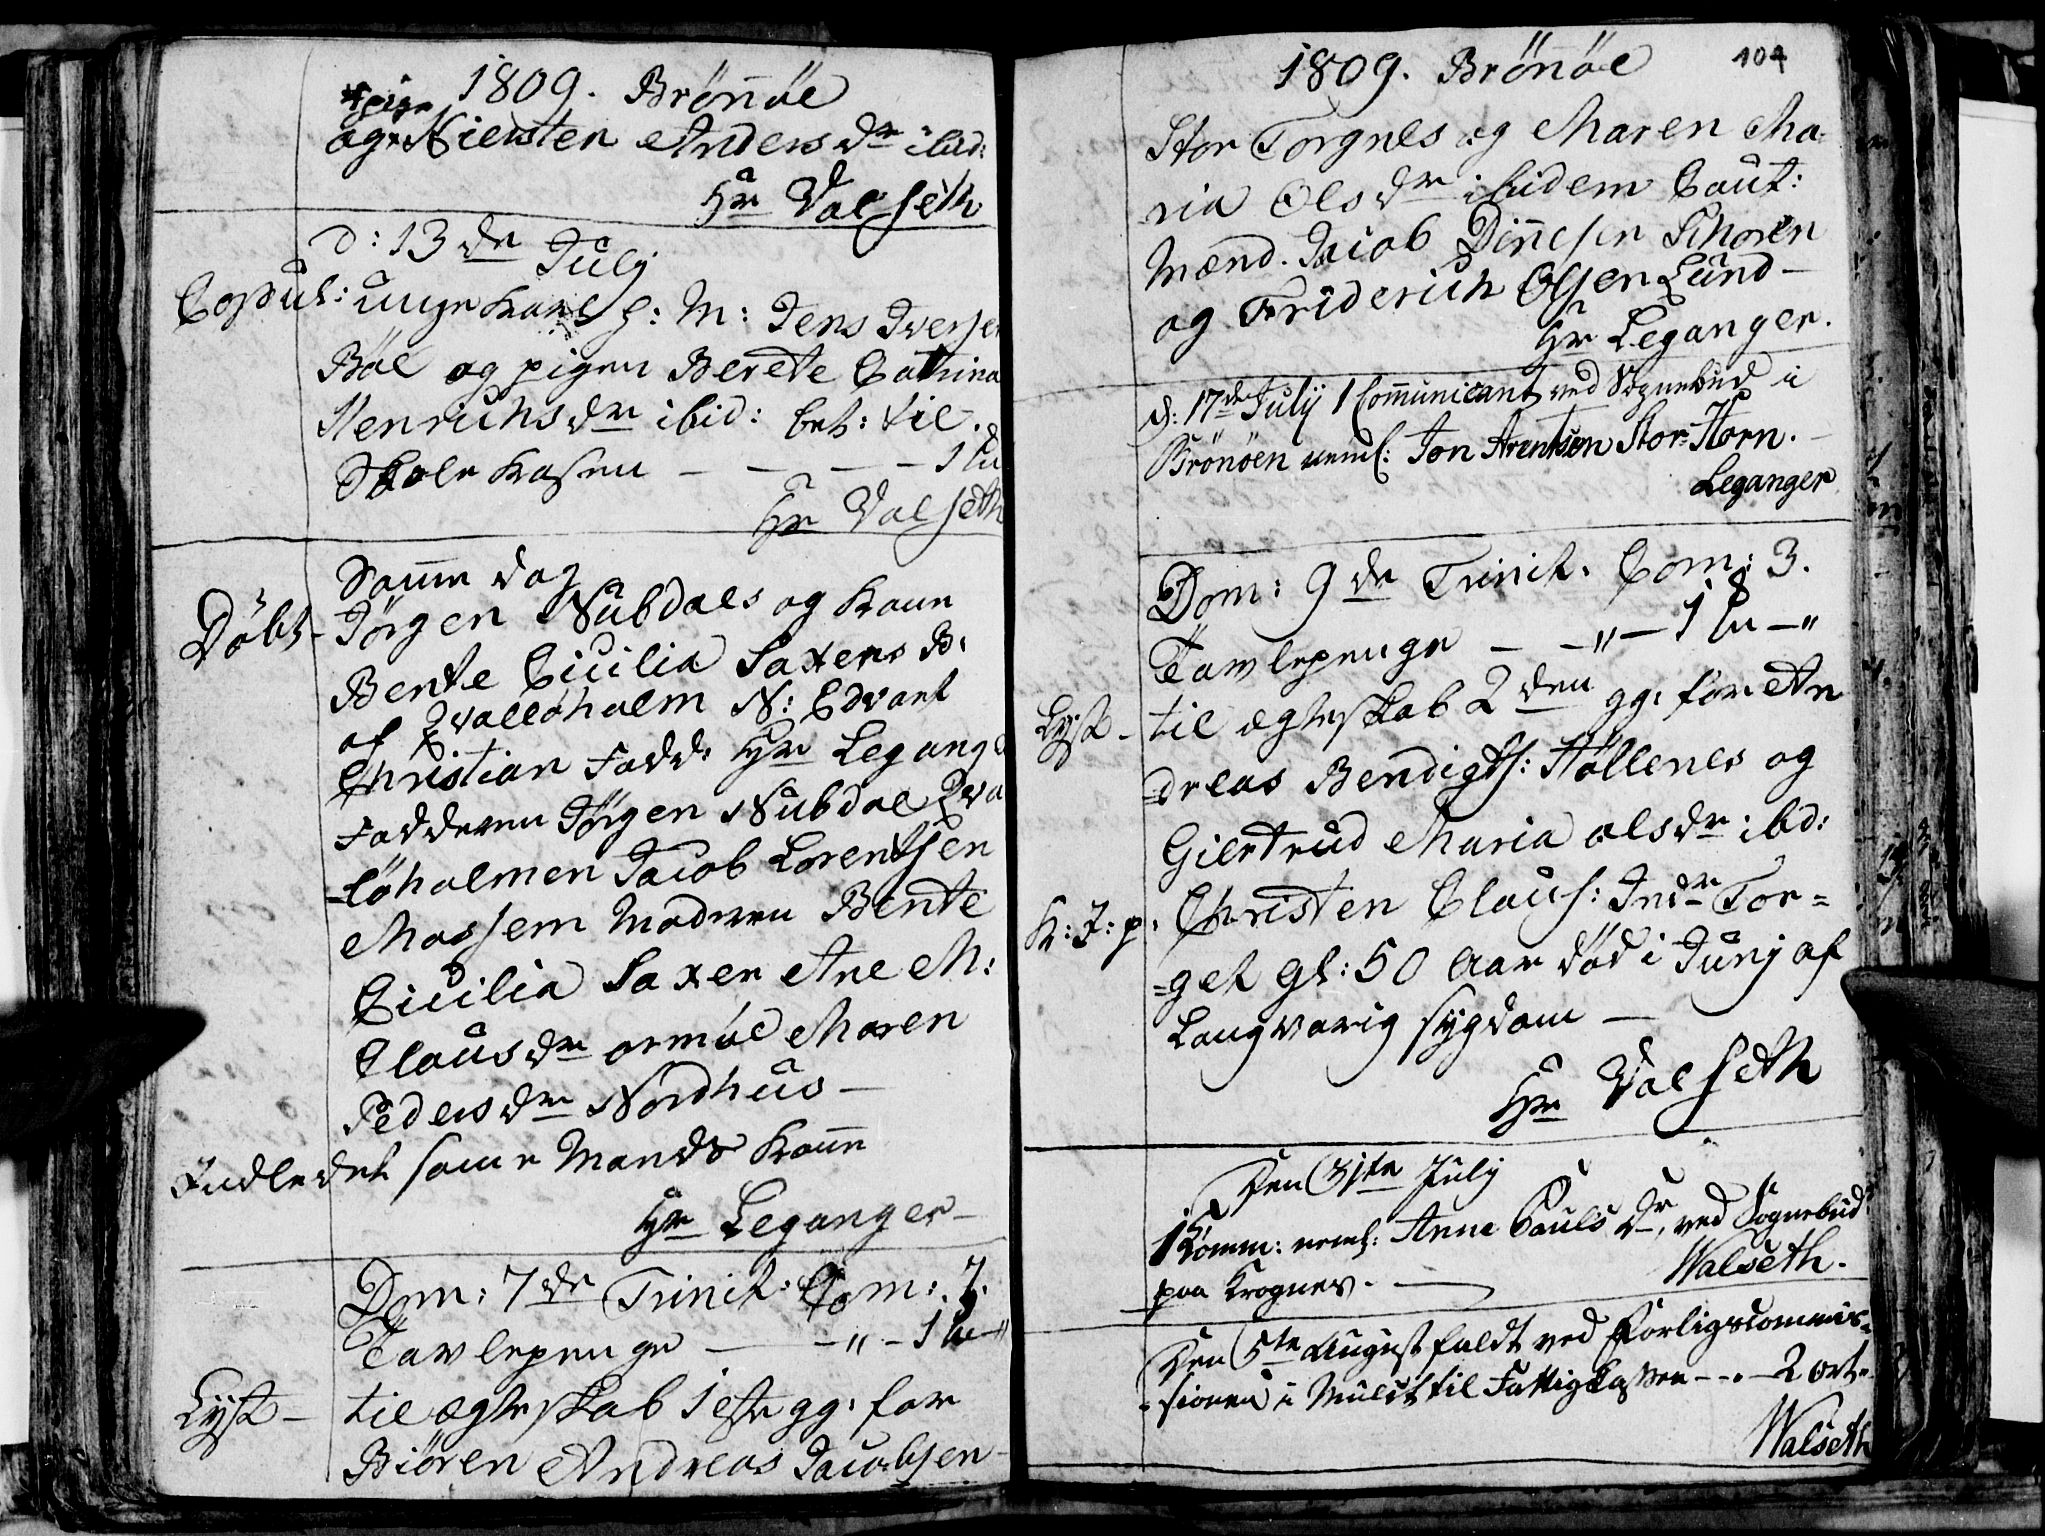 1809. Brönöe
pige
og Kiersten Andersdr ibid:
Hr Valseth
d: 13de July
Copul: unge Karl S: M: Jens Iversen
Böe og pigen Berete Catrina
Henrichsdr ibid: bet: til
Skole Kassen - - - -
Hr Valseth
Samme dag
Döbt - Jörgen Nubdals og Kone
Bente Cicilia Saxens B:
af Qvallöholm N: Edvart
Christian Fadd: Hr Leganger
Fadderen Jörgen Nubdal Qva
-löholmen Jacob Lorentsen
Mosjem Madmen Bente
Cicilia Saxen Ane M:
Clausdr ormöe Maren
Pedersdr Nordhus -
Indledet samme Mands Kone
Hr Leganger -
Dom: 7de Trinit: Com: 7.
Tavlepenge - - " - 1 "
Lyst - til ægteskab 1ste gg: for
Biören Andreas Jacobsen
1809. Brönöe 104
Stor Torgnes og Maren Ma-
ria Olsdr ibidem Caut:
Mænd. Jacob Dinesen Schoren
og Friderich Olsen Lund -
Hr Leganger.
d: 17de July 1 Communicant ved Sognebud i
Brönöen neml: Jon Arentsen Stor-Horn. -
Leganger
Dom: 9de Trinit. Com: 3.
Tavlepenge - - " - 1 - "
Lyst - til ægteskab 2den gg: for An
=dreas Bendigts: Höllenes og
Giertrud Maria olsdr ibd:
K: J: p. Christen Claus: Indr Tor=
=get gl: 50 Aar död i Juny af
Langvarig sygdom -
Hr Valseth
Den 31te July
1 Komm: neml: Anne Pauls Dr, ved Sognebud
paa Krognes. - Walseth.
Den 5te August faldt ved Forligscommis=
=sionen i Mulct til Fattigkassen - - . - 2 ort.
Walseth